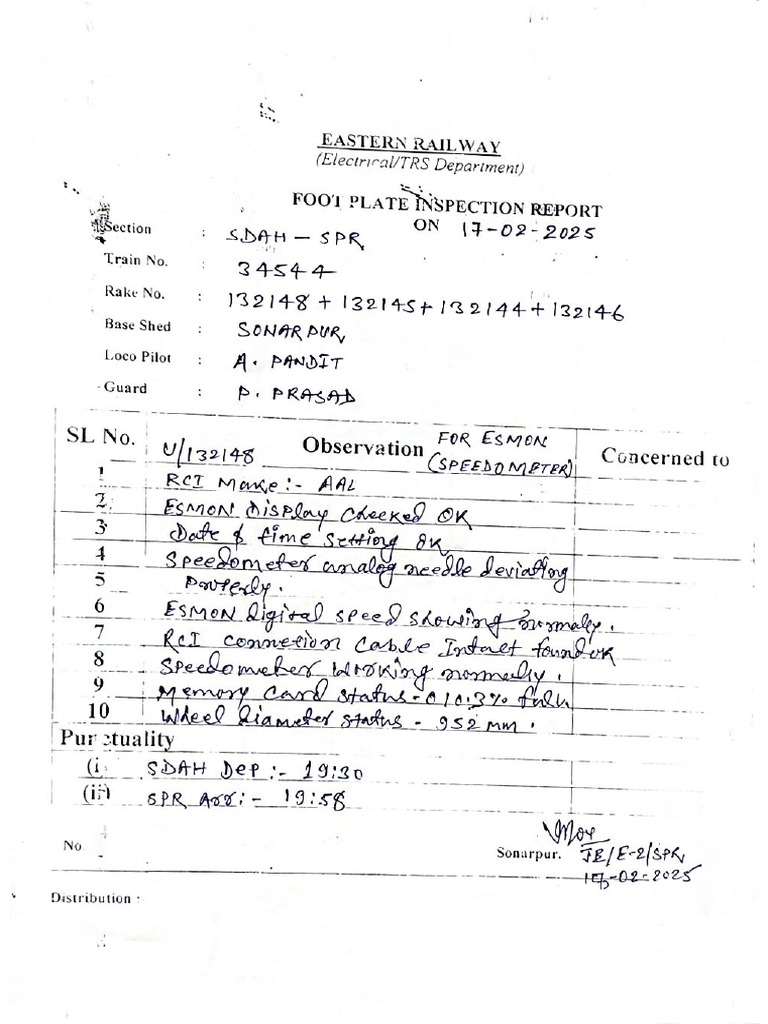 EASTERN RAILWAY
(Electrical/TRS Department)
FOOT PLATE INSPECTION REPORT
ON 17-02-2025
Section : SDAH - SPR
Train No. : 34544
Rake No. : 132148 + 132145 + 132144 + 132146
Base Shed : SONARPUR
Loco Pilot : A. PANDIT
Guard : P. PRASAD
SL No. U/132148 Observation FOR ESMON (SPEEDOMETER) Concerned to
1 RCI Make :- AAL
2 ESMON Display checked OK
3 Date & time setting OK
4 Speedometer analog needle deviating
5 Properly.
6 ESMON digital speed showing normally.
7 RCI connetion cable Intact found OK
8 Speedometer working normally.
9 Memory card status - 010.3% full.
10 Wheel diameter status - 952 mm.
Punctuality
(i) SDAH Dep :- 19:30
(ii) SPR Arr :- 19:58
No
Sonarpur. JE/E-2/SPR
17-02-2025
Distribution :